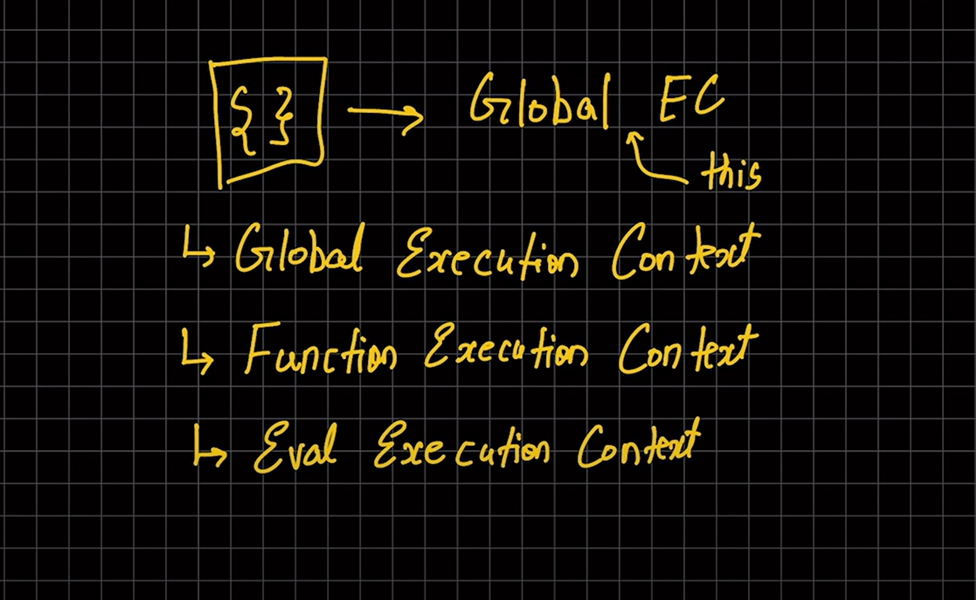 { } → Global EC
this
↳ Global Execution Context
↳ Function Execution Context
↳ Eval Execution Context